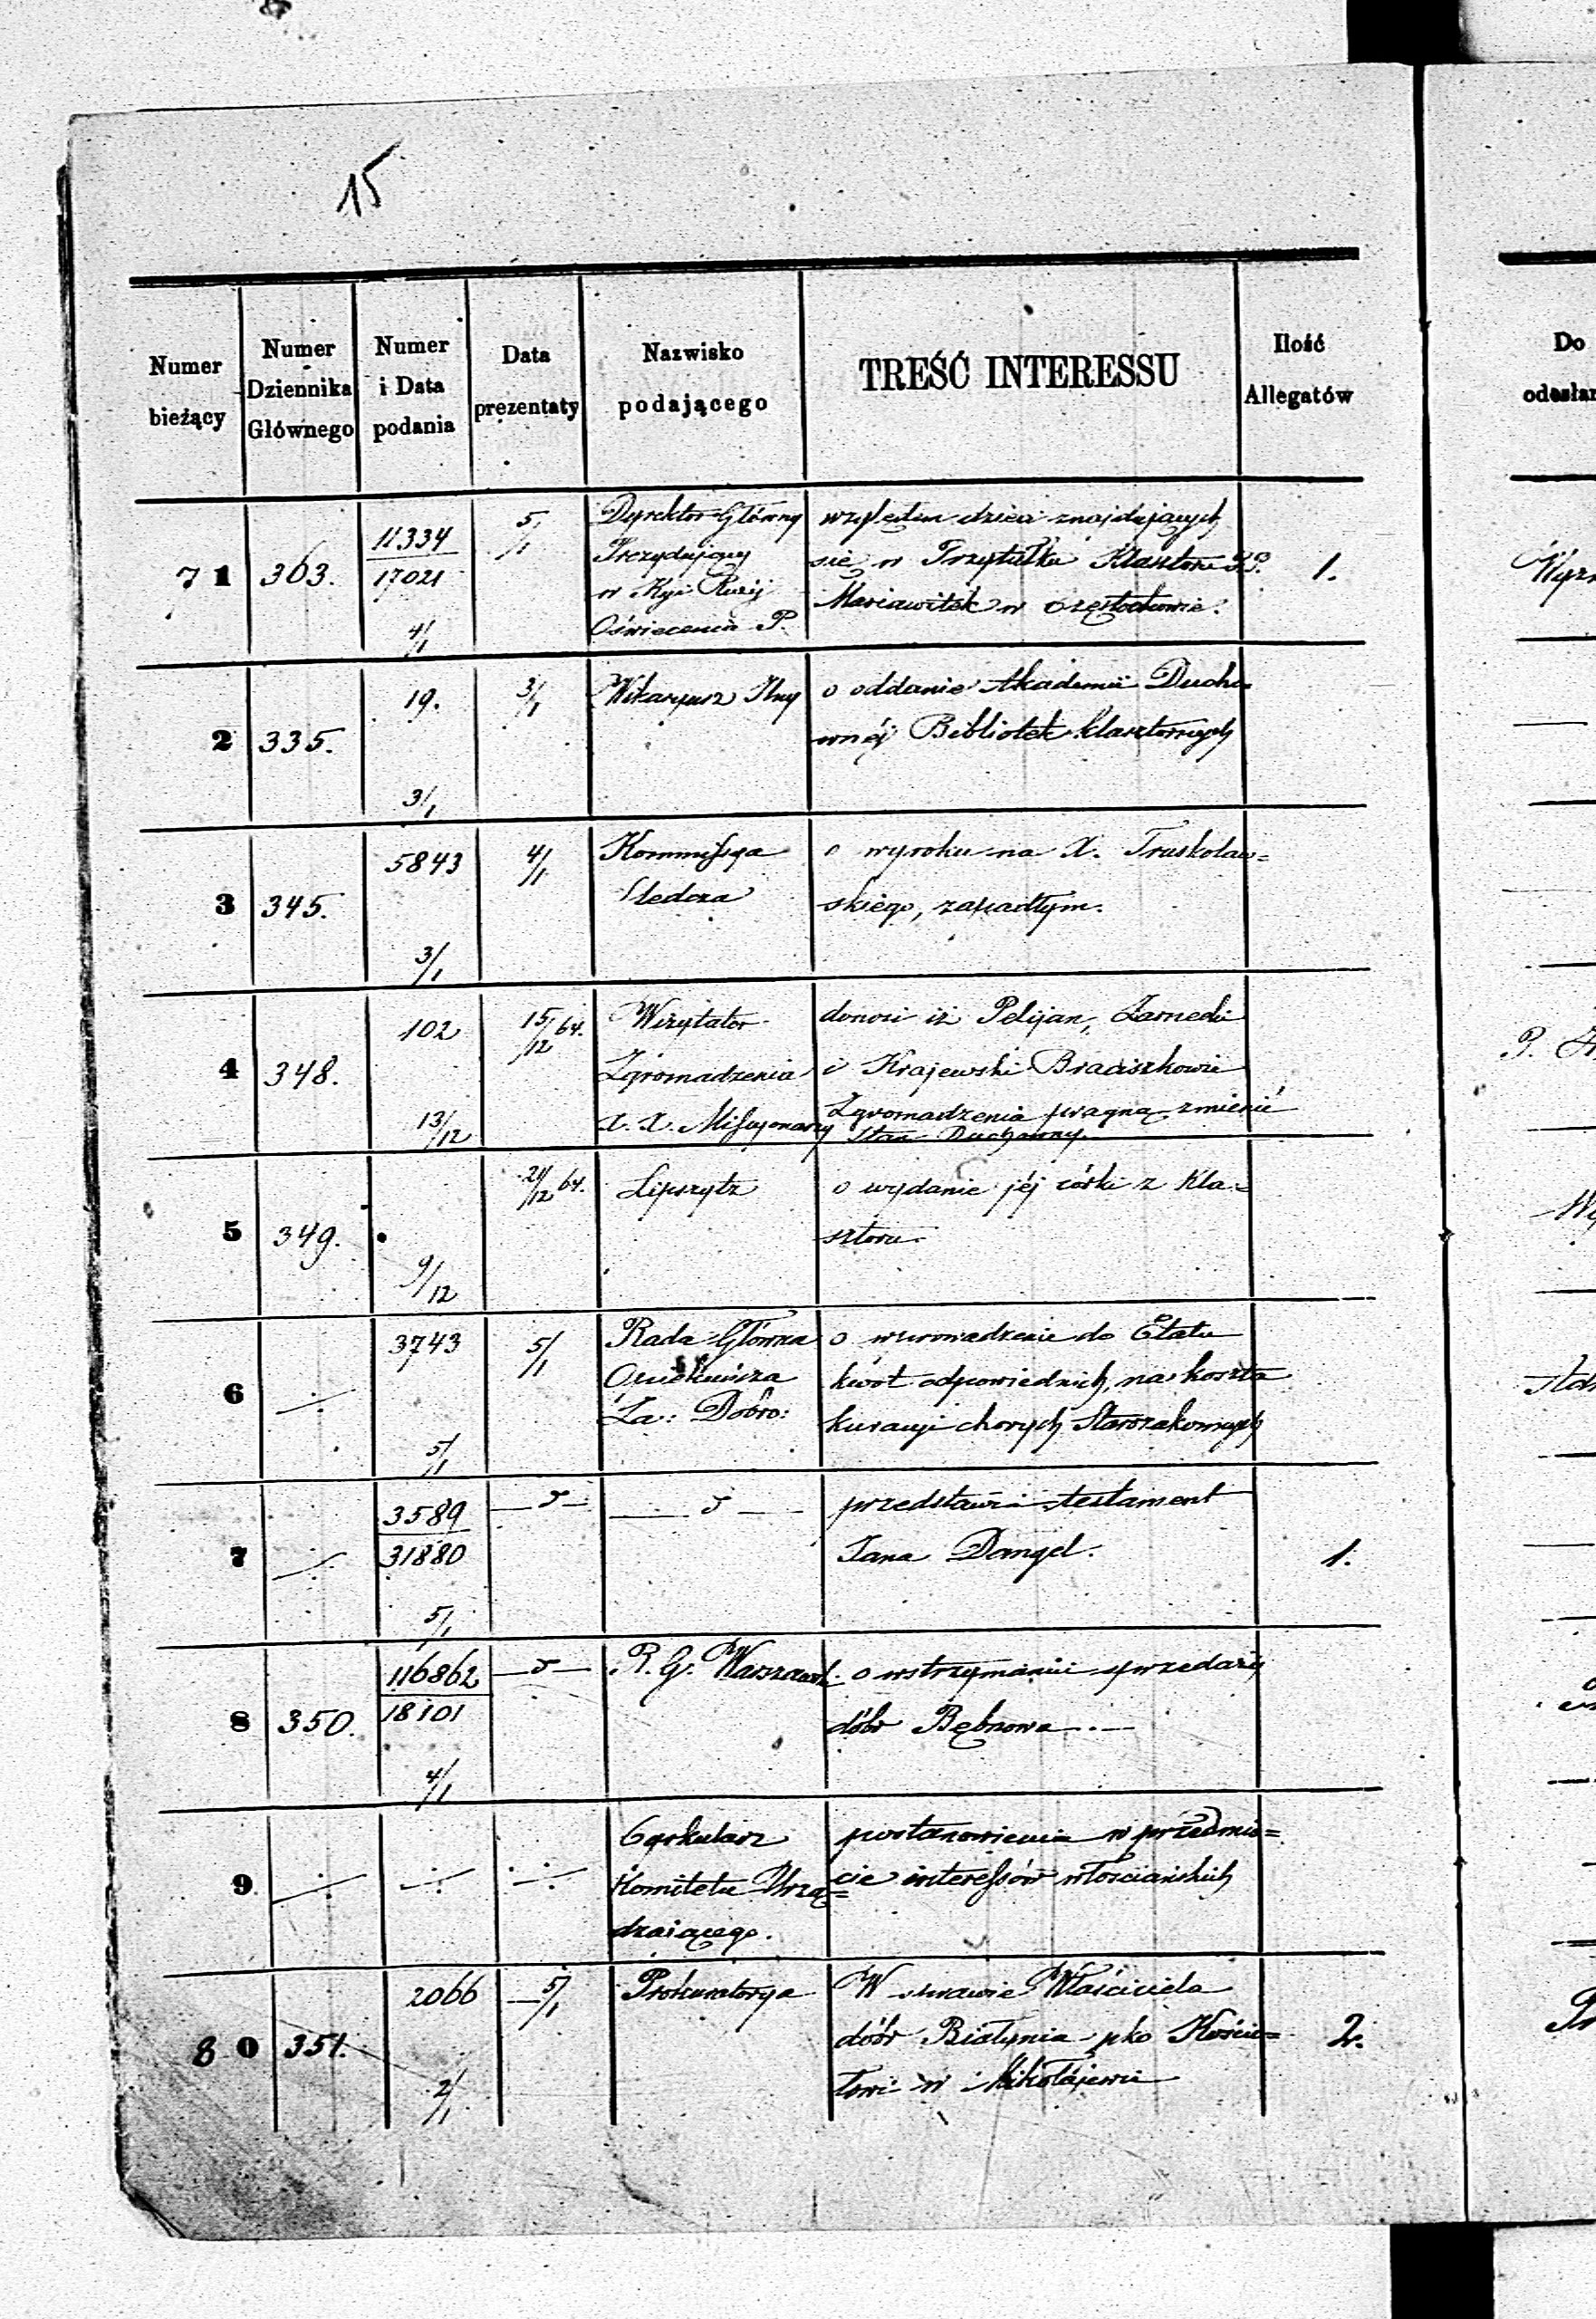 15
Numer bieżący
Numer Dziennika Głównego
Numer i Data podania
Data prezentaty
Nazwisko podającego
TREŚĆ INTERESSU
Ilość Allegatów
Do
71 363. 11334 / 17021 4/1 5/1
Dyrektor Główny
Prezydujący
w Kyi Rząj
Oświecenia P.
względem dzieci znajdujących
się w Przytułku Klasztoru PP.
Mariawitek w Częstochowie.
1.
2 335. 19. 3/1 3/1
Wikaryusz Jlny
o oddanie Akademii Ducho-
wnéj Bibliotek klasztornych
3 345. 5843 3/1 4/1
Kommissya
Śledcza
o wyroku na X. Truskolaw=
skiego, zapadłym.
4 348. 102 13/12 15/12 64.
Wizytator
Zgromadzenia
X. X. Missyonarzy
donosi iż Pelijan, Zarnecki
i Krajewski Braciszkowie
Zgromadzenia pragną zmienić
Stan Duchowny.
5 349. 9/12 21/12 64.
Lipszytz
o wydanie jéj córki z Kla=
sztoru.
6 ./. 3743 5/1 5/1
Rada Główna
Opiekuńcza
Za: Dobro:
o wprowadzenie do Etatu
kwot odpowiednich, na koszta
kuracyi chorych Starozakonnych
7 ./. 3589 / 31880 5/1 — " —
— " —
przedstawia testament
Jana Dangel.
1.
8 350. 116862 / 18101 4/1 — " —
R. G. Warszawsk.
o wstrzymanie sprzedaży
dóbr Bębnowa
9 ./. ./. ./.
Cyrkularz
Komitetu Urzą=
dzającego.
postanowienia w przedmio=
cie interessów włościańskich
80 351. 2066 2/1 5/1
Prokuratorya
W sprawie Właściciela
dóbr Białynia pko Kościo=
łowi w Mikołajewie
2.